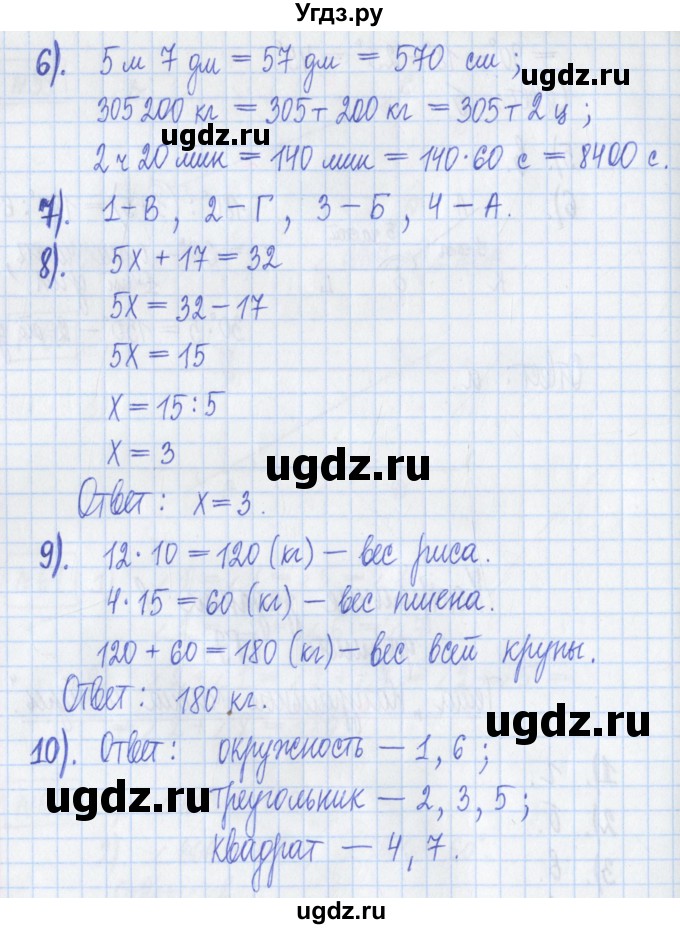 Угдз.ру
6). 5 м 7 дм = 57 дм = 570 см ;
ugdz.ru
305 200 кг = 305 т 200 кг = 305 т 2 ц ;
ugdz.ru
2 ч 20 мин = 140 мин = 140·60 с = 8400 с.
7). 1 – В , 2 – Г , 3 – Б , 4 – А.
8). 5х + 17 = 32
5х = 32 – 17
5х = 15
х = 15 : 5
х = 3
ugdz.ru
Ответ : х = 3 .
9). 12 · 10 = 120 (кг) – вес риса.
4 · 15 = 60 (кг) – вес пшена.
120 + 60 = 180 (кг) – вес всей крупы.
Ответ : 180 кг.
ugdz.ru
10). Ответ : окружность – 1, 6 ;
ugdz.ru
треугольник – 2, 3, 5 ;
квадрат – 4, 7.
ugdz.ru